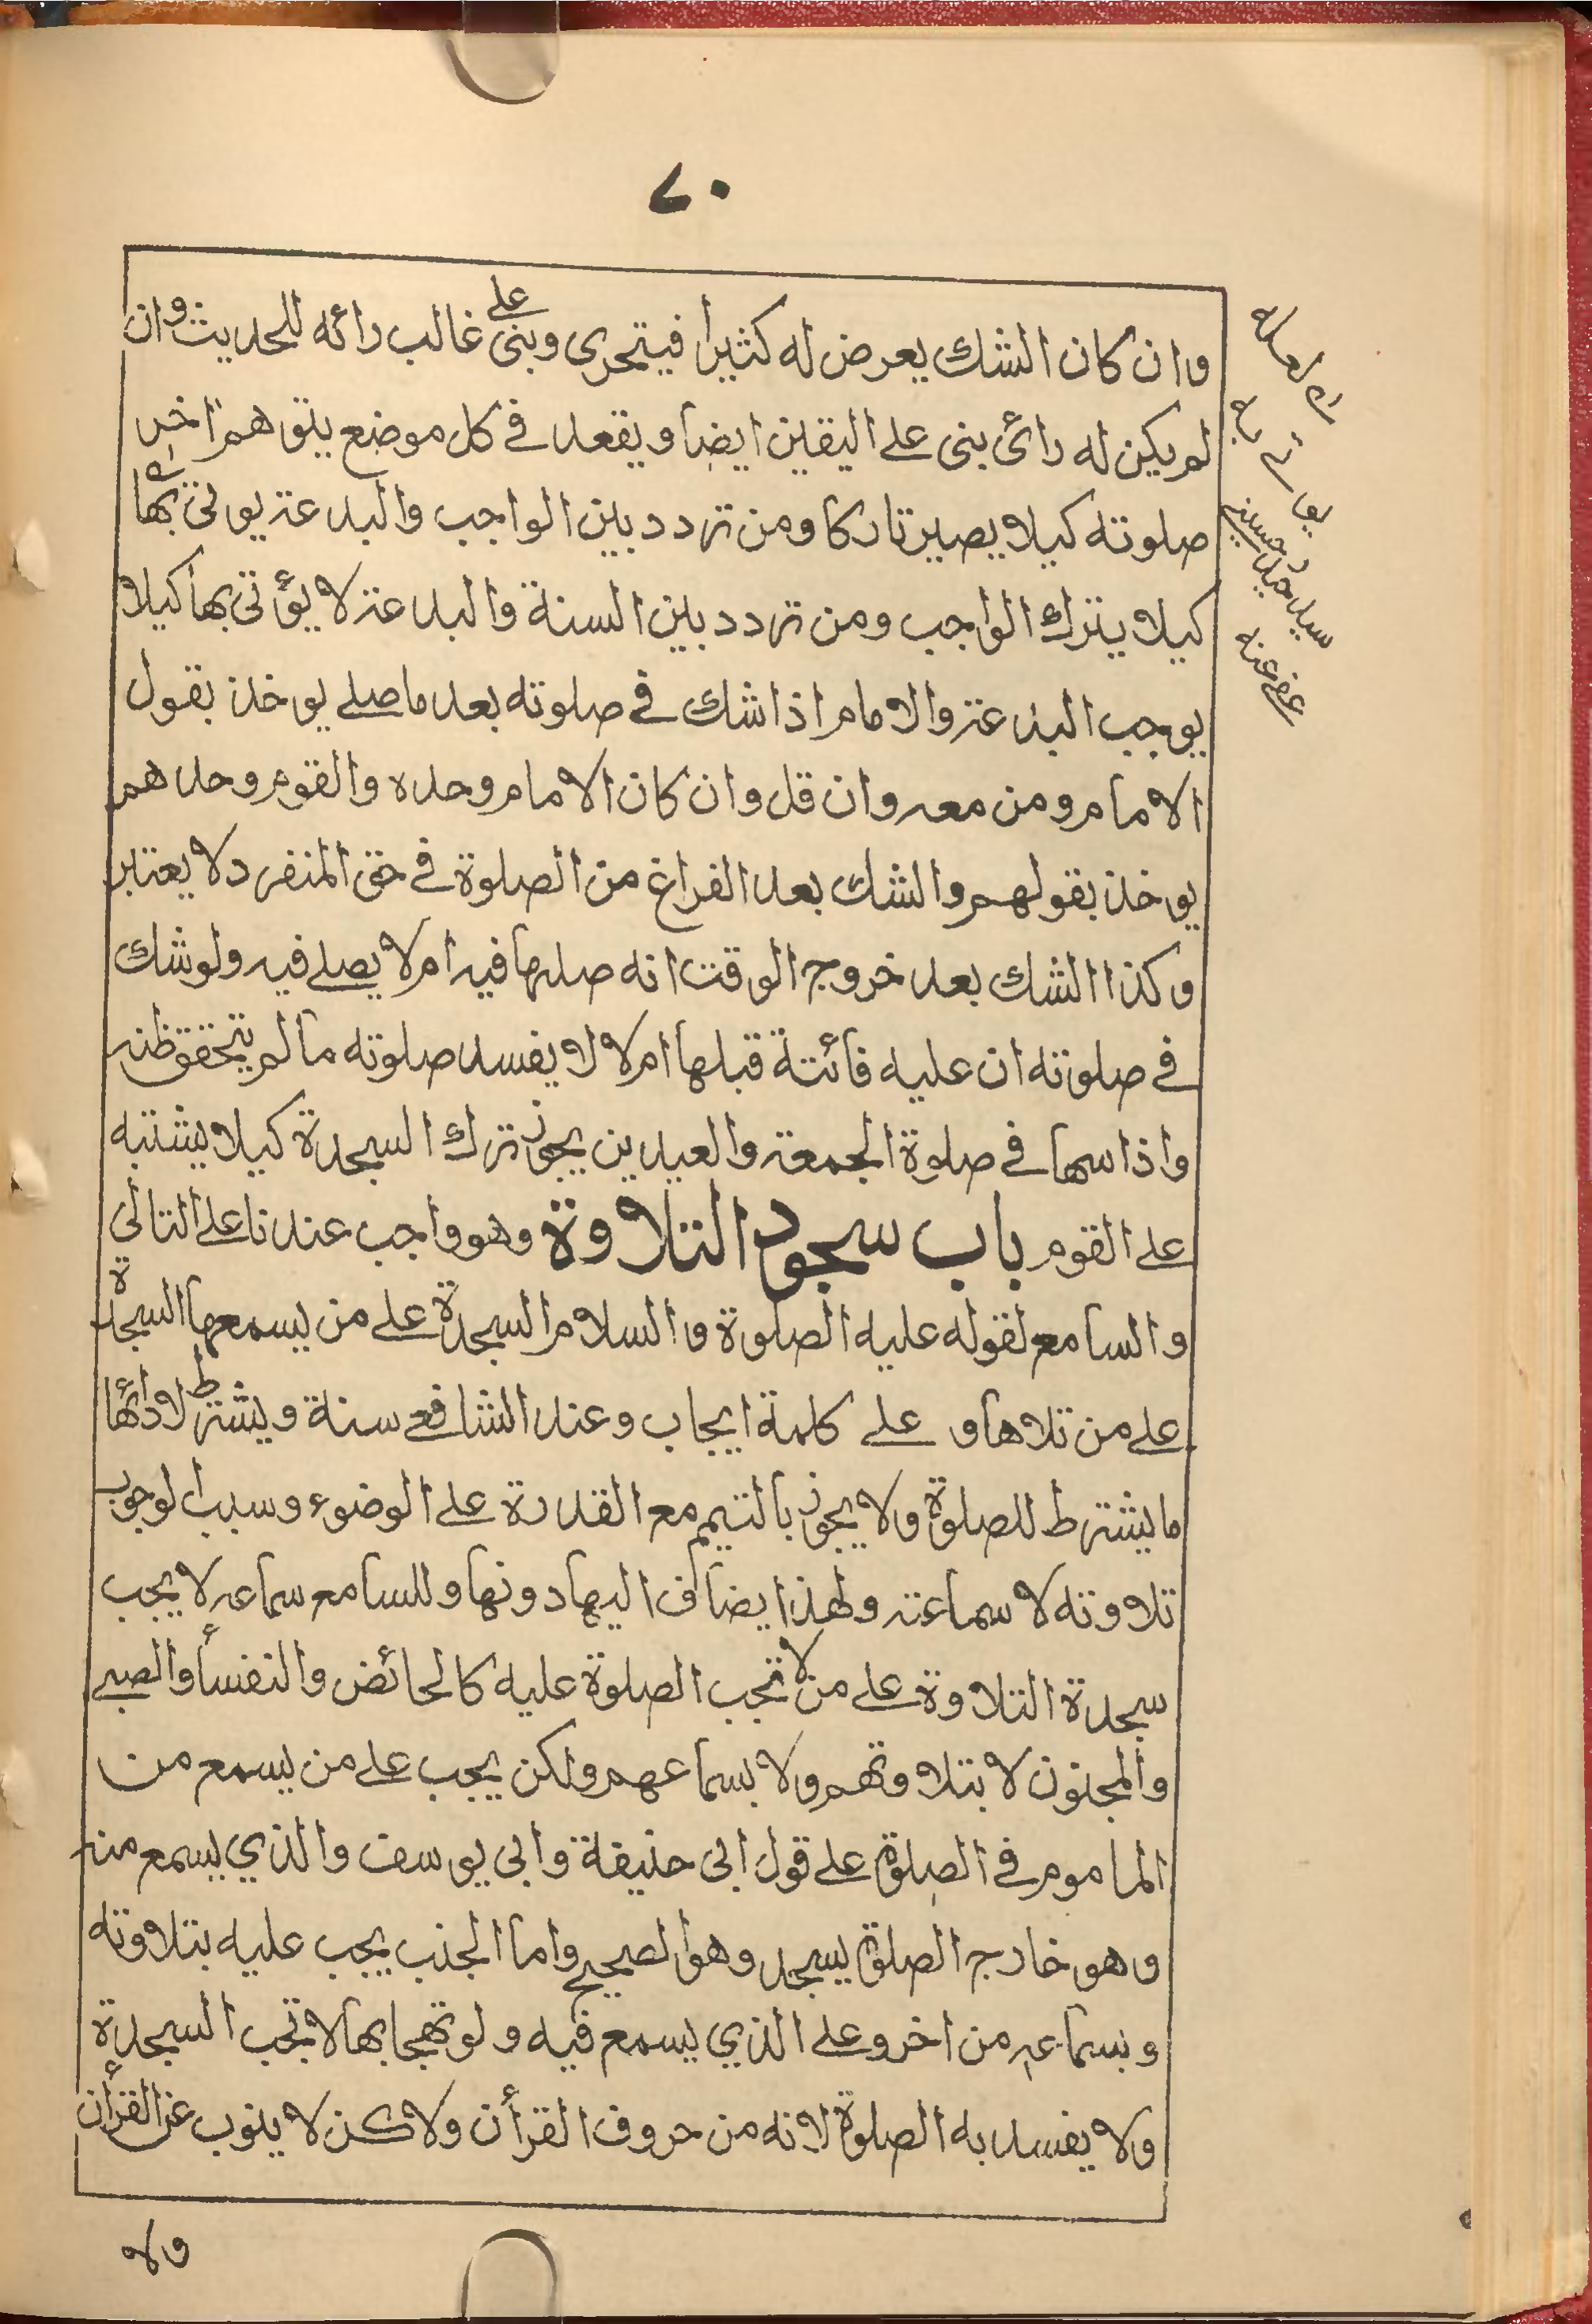 ٧٠
وان كان الشك يعرض له كثيرا فيتحرى وبنى على غالب رائه للحديث وان
لم يكن له رائ بنى على اليقين ايضا ويقعد فى كل موضع يتوهم اخر
صلوته كيلا يصير تاركا ومن تردد بين الواجب والبدعة يوتى بها
كيلا يترك الواجب ومن تردد بين السنة والبدعة لا يؤتى بها كيلا
يوجب البدعة والامام اذا شك فى صلوته بعد ما صلے يوخذ بقول
الامام ومن معه وان قل وان كان الامام وحده والقوم وحدهم
يوخذ بقولهم والشك بعد الفراغ من الصلوة فى حق المنفرد لا يعتبر
وكذا الشك بعد خروج الوقت انه صلها فيه ام لا يصلے فيه ولو شك
فى صلوته ان عليه فائتة قبلها ام لا لا يفسد صلوته ما لم يتحقق ظنه
واذا سها فى صلوة الجمعة والعيدين يجوز ترك السجدة كيلا يشتبه
على القوم باب سجود التلاوة وهو واجب عندنا على التالي
والسامع لقوله عليه الصلوة والسلام السجدة على من يسمعها السجدة
على من تلاها و على كلمة ايجاب وعند الشافعے سنة ويشترط لادائها
ما يشترط للصلوة ولا يجوز بالتيمم مع القدرة على الوضوء وسبب الوجوب
تلاوته لا سماعته ولهذا يضاف اليها دونها وللسامع سماعه لا يجب
سجدة التلاوة على من لا تجب الصلوة عليه كالحائض والنفسأ والصبے
والمجنون لا بتلاوتهم ولا بسماعهم ولكن يجب على من يسمع من
الماموم فى الصلوة على قول ابى حنيفة وابى يوسف والذي يسمع منه
وهو خارج الصلوة يسجد وهو الصحيح واما الجنب يجب عليه بتلاوته
وبسماعه من اخر وعلى الذي يسمع فيه ولو تهجا بها لا تجب السجدة
ولا يفسد به الصلوة لانه من حروف القرأن ولاكن لا ينوب عن القرأن
ولا
سيد حسينے
عفى عنه